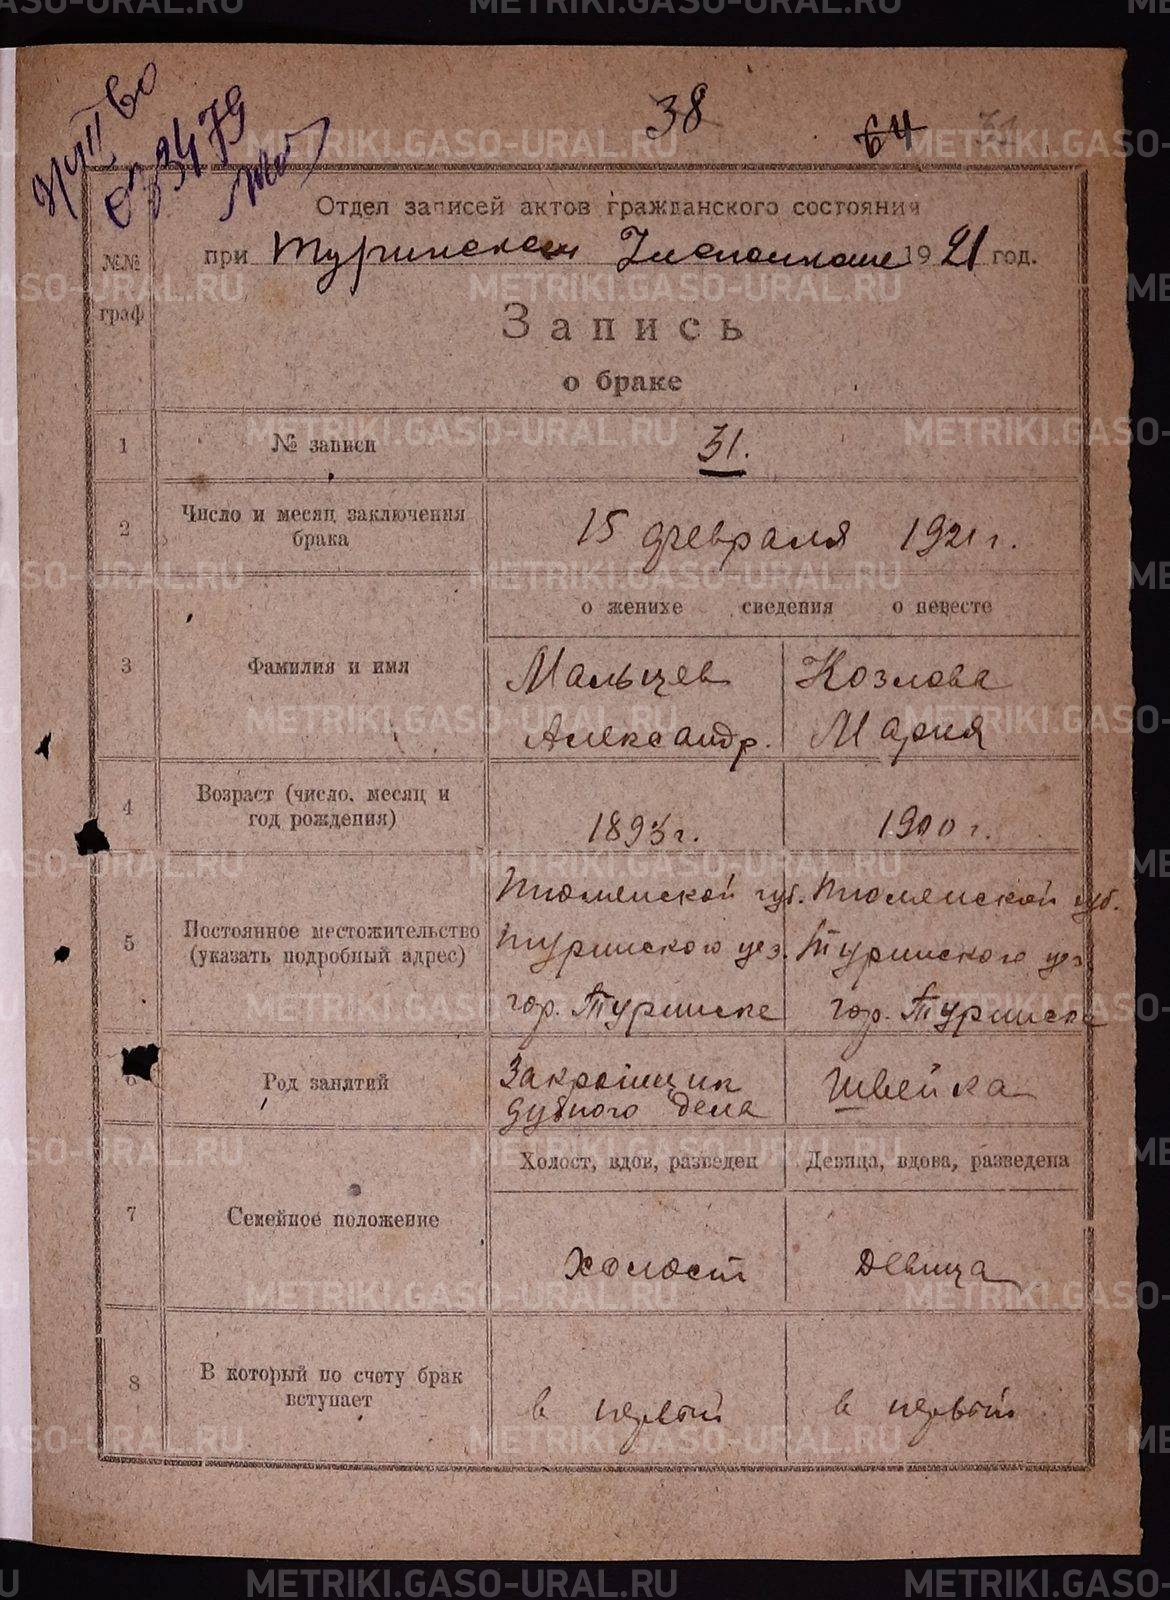 38
64 31
03479
Отдел записей актов гражданского состояния
при Туринском Исполкоме 1921 год.
№№ граф
Запись
о браке
1 № записи 31.
2 Число и месяц заключения брака 15 февраля 1921 г.
о женихе сведения о невесте
3 Фамилия и имя Мальцев Козлова
Александр. Мария
4 Возраст (число, месяц и год рождения) 1893 г. 1900 г.
5 Постоянное местожительство (указать подробный адрес) Тюменской губ. Тюменской губ.
Туринского уез. Туринского уез
гор. Туринске гор. Туринске
6 Род занятий Закройщик Швейка
дубного дела
Холост, вдов, разведен Девица, вдова, разведена
7 Семейное положение холост девица
8 В который по счету брак вступает в первый в первый
METRIKI.GASO-URAL.RU